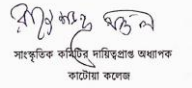 সাংস্কৃতিক কমিটির দায়িত্বপ্রাপ্ত অধ্যাপক
কাটোয়া কলেজ